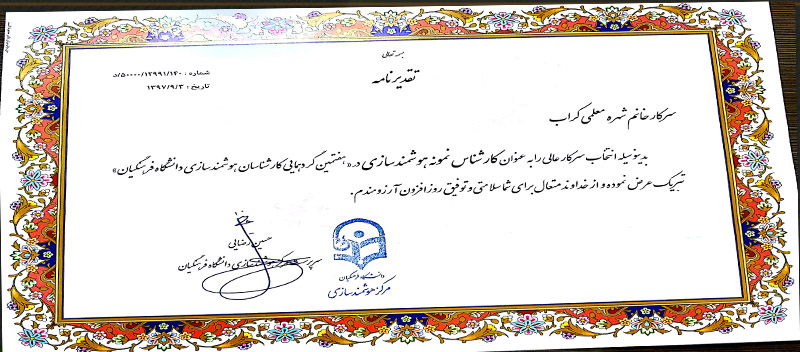 بسمه تعالی
تقدیرنامه
شماره : ۵۰۰۰۰/۱۳۹۹۱/۱۴۰/د
تاریخ : ۱۳۹۷/۹/۳
سرکار خانم شهره معلمی کراب
بدینوسیله انتخاب سرکار عالی را به عنوان کارشناس نمونه هوشمندسازی در « هفتمین گردهمایی کارشناسان هوشمندسازی دانشگاه فرهنگیان»
تبریک عرض نموده و از خداوند متعال برای شما سلامتی و توفیق روز افزون آرزومندم.
حسین رضایی
سرپرست مرکز هوشمندسازی دانشگاه فرهنگیان
دانشگاه فرهنگیان
مرکز هوشمندسازی